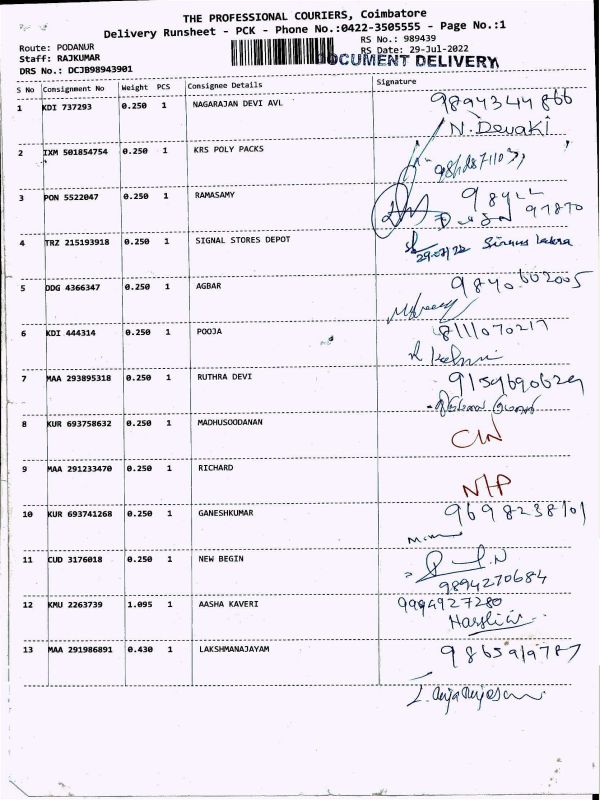 THE PROFESSIONAL COURIERS, Coimbatore
Delivery Runsheet - PCK - Phone No.:0422-3505555 - Page No.:1
Route: PODANUR
RS No.: 989439
Staff: RAJKUMAR
RS Date: 29-Jul-2022
DRS No.: DCJB98943901
DOCUMENT DELIVERY
S No Consignment No Weight PCS Consignee Details Signature
1 KDI 737293 0.250 1 NAGARAJAN DEVI AVL 9894344866
N. Devaki
2 IXM 501854754 0.250 1 KRS POLY PACKS
3 PON 5522047 0.250 1 RAMASAMY
97870
4 TRZ 215193918 0.250 1 SIGNAL STORES DEPOT
29/07/22
5 DDG 4366347 0.250 1 AGBAR 9840602005
6 KDI 444314 0.250 1 POOJA 8111070217
7 MAA 293895318 0.250 1 RUTHRA DEVI 9159690629
8 KUR 693758632 0.250 1 MADHUSOODANAN
C/N
9 MAA 291233470 0.250 1 RICHARD
N/P
10 KUR 693741268 0.250 1 GANESHKUMAR 9698238101
11 CUD 3176018 0.250 1 NEW BEGIN
9894270684
12 KMU 2263739 1.095 1 AASHA KAVERI 9994927280
13 MAA 291986891 0.430 1 LAKSHMANAJAYAM 9865919787